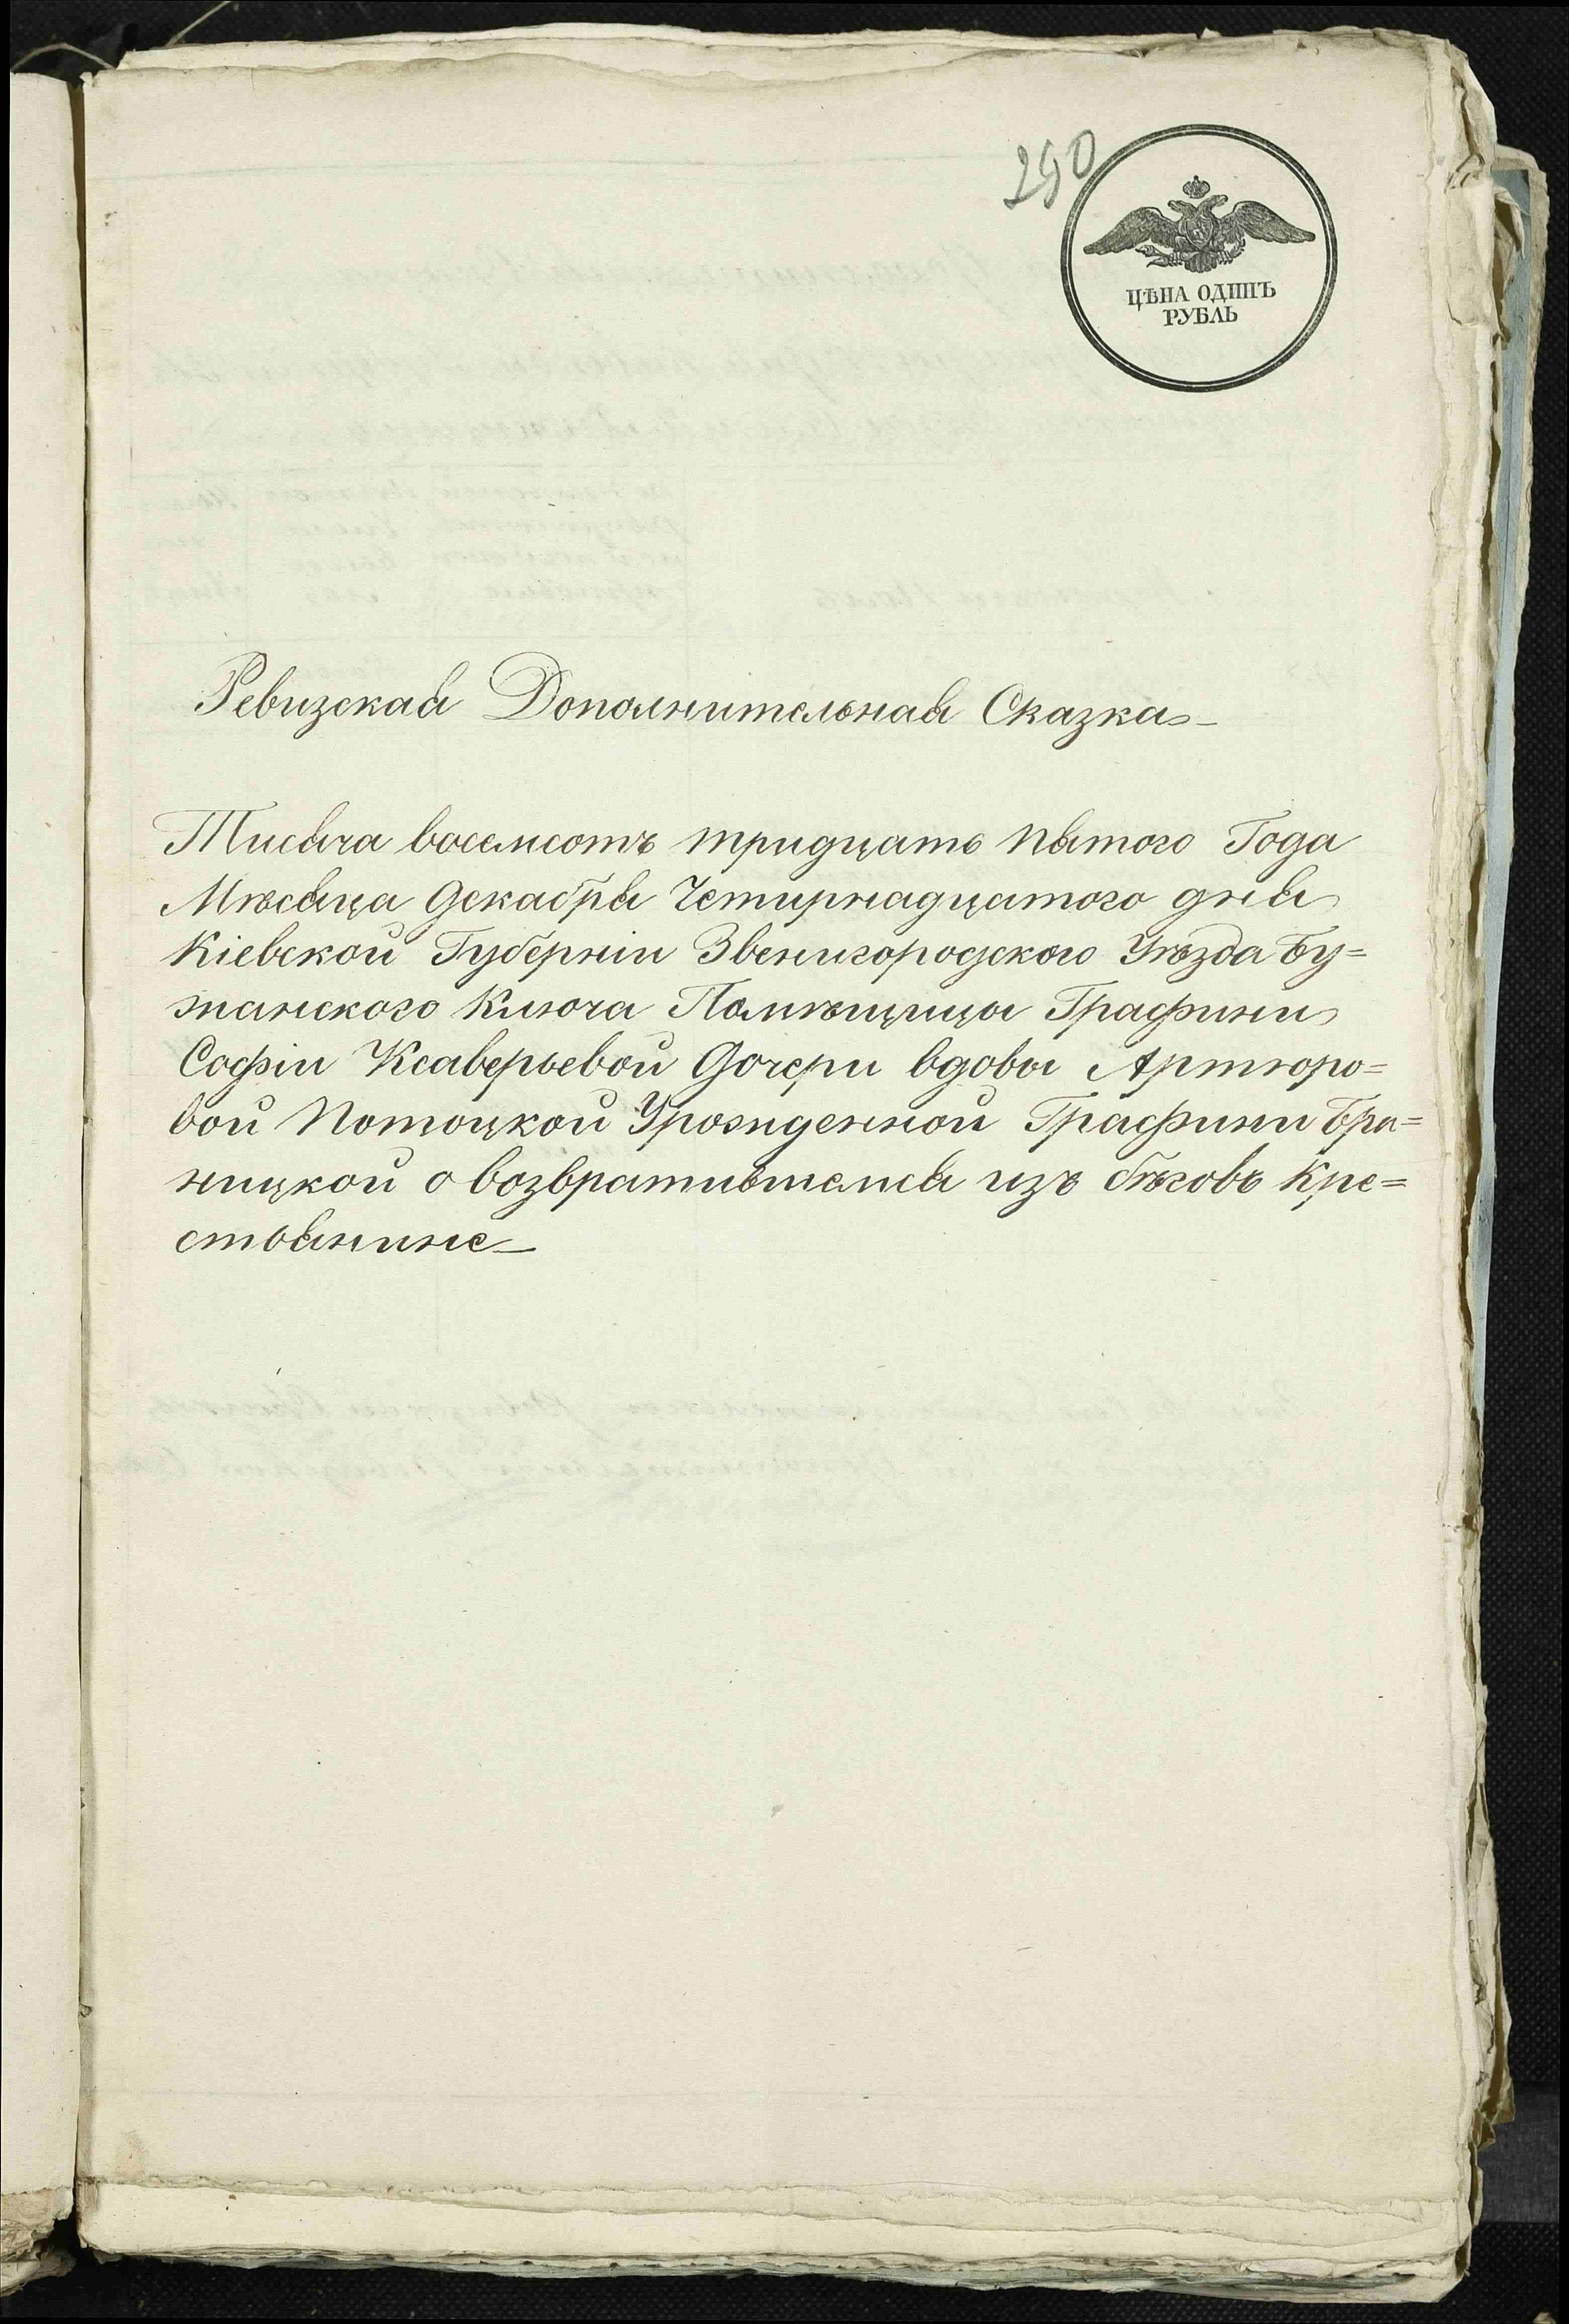 290
ЦѢНА ОДИНЪ
РУБЛЬ
Ревизская Дополнительная Сказка
Тисяча восемсотъ тридцать пятого Года
Мѣсяца Декабря Четирнадцатого дня
Кіевской Губерніи Звенигородского Уѣзда Бу=
жанского Ключа Помѣщицы Графини
Софіи Ксаверьевой Дочери вдовы Артюро=
вой Потоцкой Урожденной Графини Бра=
ницкой о возвратившемся изъ бѣговъ Кре=
стьянине